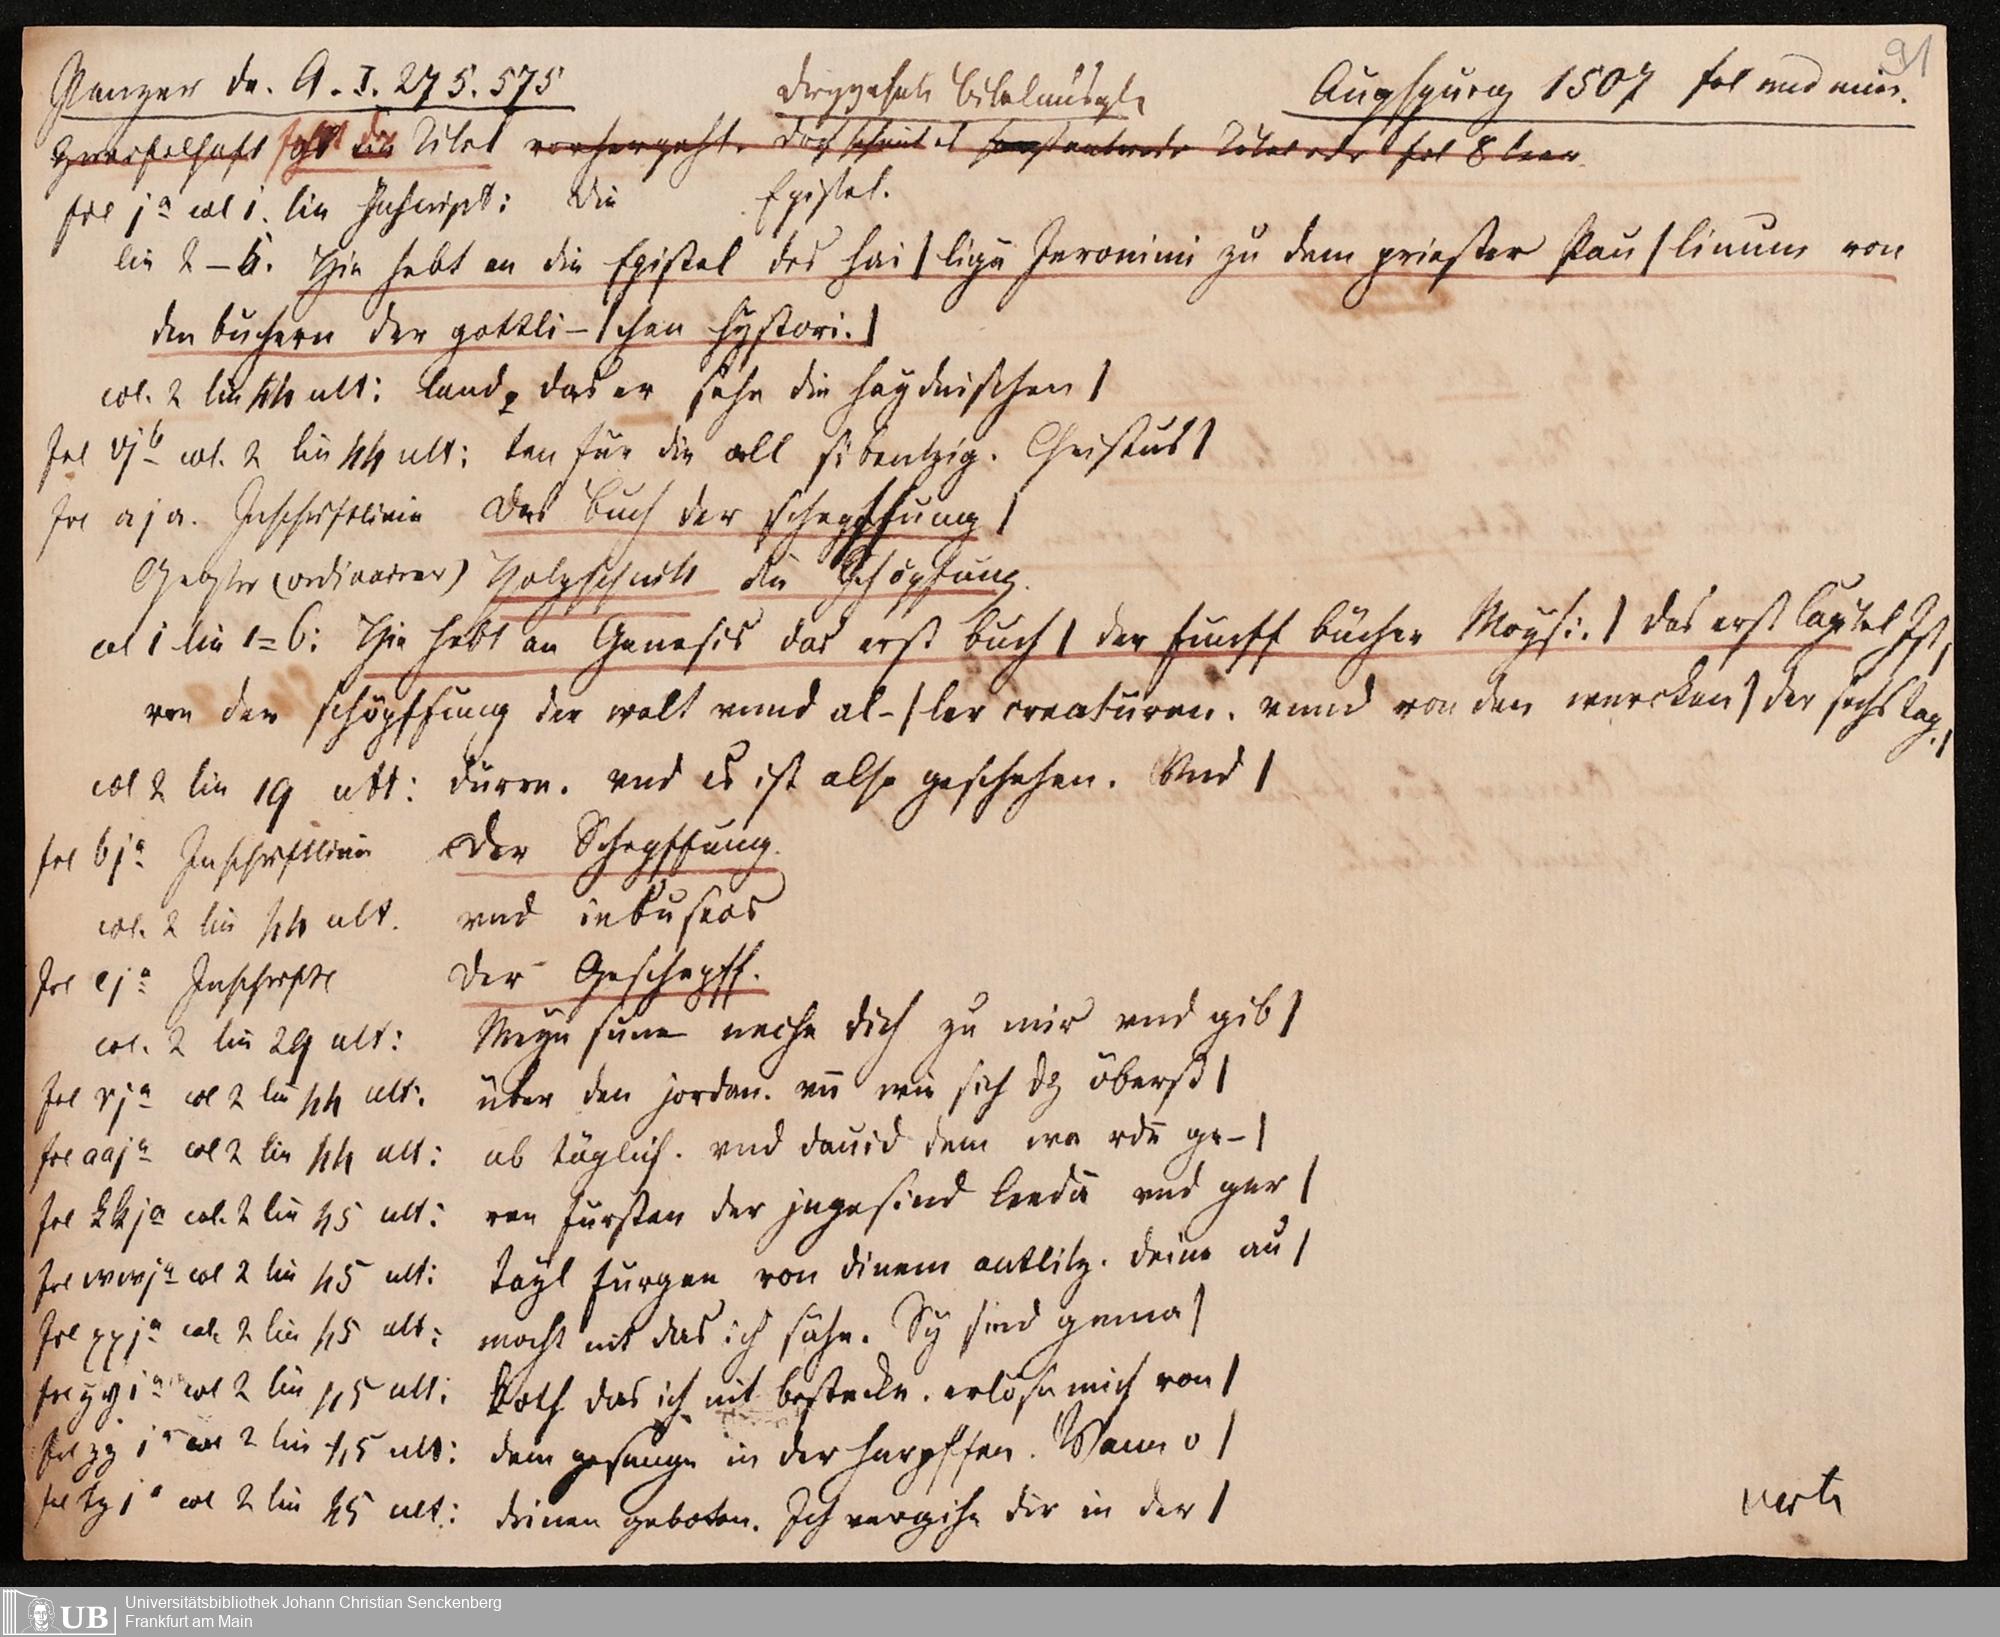 Panzer dn. A. I. 275. 575 Doppelsaite Bibelausgabe Augspurg 1507 fol und min. 91
Zweifelhaft fehlt der Titel vorhergeht. doch scheint es Titel oder fol 8 leer
fol jª col 1. lin Inscript: Die Epistel.
lin 2–6. Hie hebt an die Epistel des hai | ligē Jeronimi zu dem priester Pau | linum von
den buchern der gottli– | chen hystori. |
col. 2 lin 44 ult: land, das er sehe die haydnischen |
fol vjᵇ col. 2 lin 44 ult: ten fur die all sibentzig. Christus |
fol aja. Inschriftlinie Das Buch der schepffung |
(ordinairer) Holzschnitt die Schöpfung.
col 1 lin 1=6: Hie hebt an Genesis das erst buch | der funff bücher Moysi. | Das erst Capitel Ist |
von der schöpffung der welt vnnd al– | ler creaturen. vnnd von den wercken | der sechs tag. |
col 2 lin 19 ult: durre. vnd es ist also geschehen. Vnd |
fol bjª Inschriftlinie Der Schepffung.
col. 2 lin 44 ult. vnd iebuseos
fol cjª Inschriftl Der Geschepff.
col. 2 lin 29 ult: Meyn sune neche dich zu mir vnd gib |
fol rjª col 2 lin 44 ult: über den jordan. vn̄ wie sich dz öberst |
fol aajª col 2 lin 44 ult: ab täglich. vnd dauid dem wa rdē ge– |
fol kkjª col. 2 lin 45 ult: ren fursten der jngesind leuitē vnd ger |
fol vvjª col 2 lin 45 ult: tayl furgee von dinem antlitz. deine au |
fol xxjª col. 2 lin 45 ult: mocht nit das ich sähe. Sy sind gema |
fol yyjª col 2 lin 45 ult: koth das ich nit bestecke. erlöse mich von |
fol zzjª col 2 lin 45 ult: dem gesange in der harpffen. Wann o |
fol jª col 2 lin 45 ult: deinen geboten. Ich vergihe dir in der |
verte
UB Universitätsbibliothek Johann Christian Senckenberg
Frankfurt am Main